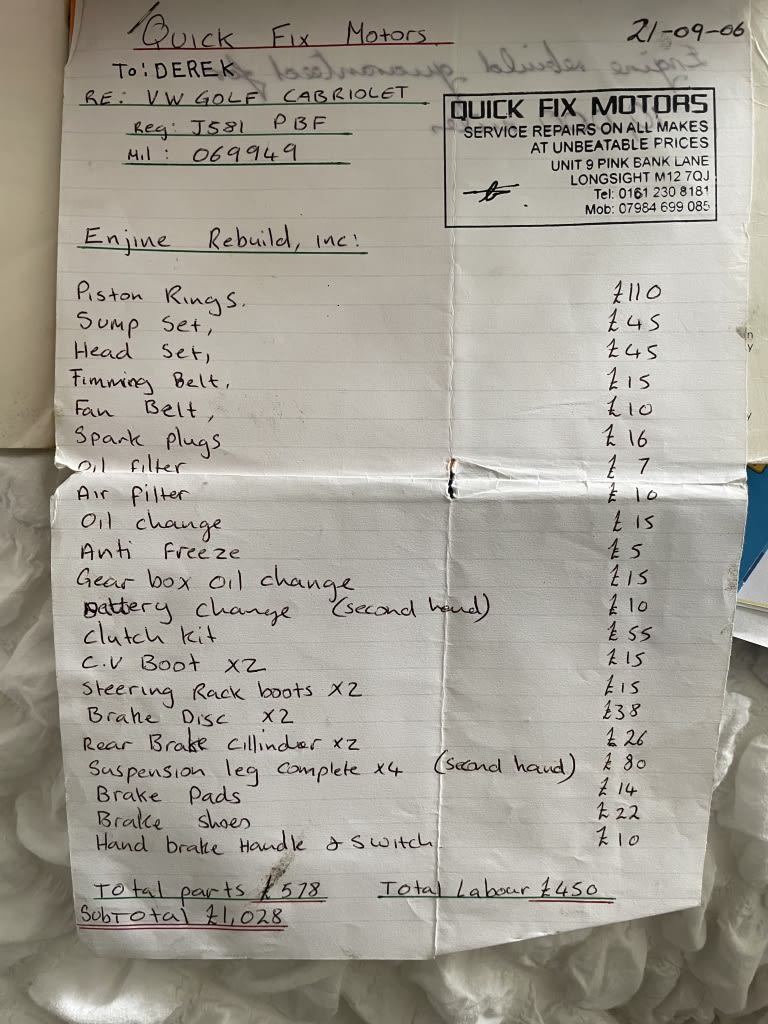 Quick Fix Motors.
21-09-06
To: DEREK
Engine rebuild guaranteed
RE: VW GOLF CABRIOLET
Reg: J581 PBF
Mil: 069949
QUICK FIX MOTORS
SERVICE REPAIRS ON ALL MAKES
AT UNBEATABLE PRICES
UNIT 9 PINK BANK LANE
LONGSIGHT M12 7QJ
Tel: 0161 230 8181
Mob: 07984 699 085
Enjine Rebuild, inc:
Piston Rings. £110
Sump Set, £45
Head Set, £45
Fimming Belt, £15
Fan Belt, £10
Spark plugs £16
Oil filter £7
Air filter £10
Oil change £15
Anti Freeze £5
Gear box oil change £15
Battery change (second hand) £10
Clutch kit £55
C.V Boot x2 £15
Steering Rack boots x2 £15
Brake Disc x2 £38
Rear Brake cillinder x2 £26
Suspension leg complete x4 (second hand) £80
Brake Pads £14
Brake shoes £22
Hand brake Handle & Switch £10
Total parts £578 Total Labour £450
SubTotal £1,028